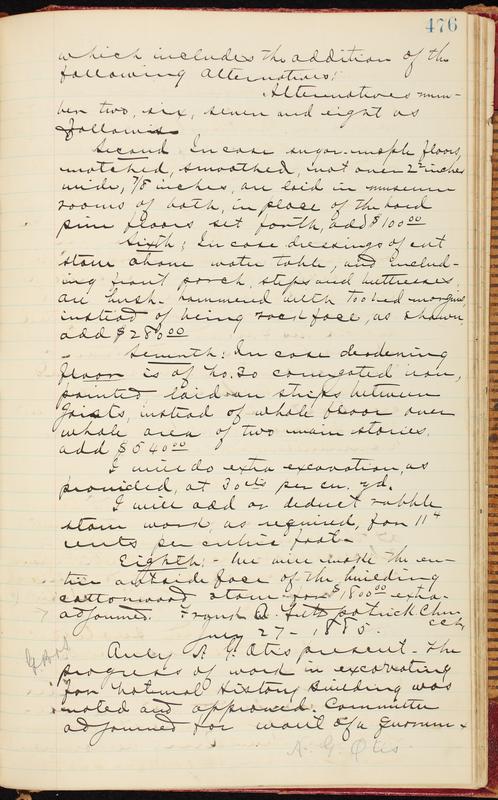 476
which includes the addition of the
following alternatives:
Alternatives num-
ber two, six, seven and eight as
follows
Second: In case sugar-maple floors,
matched, smoothed, not over 2" inches
wide, 7/8 inches, are laid in museum
rooms of both, in place of the hard
pine floors set forth, add $100.00
Sixth; In case dressings of cut
stone above water table, and includ-
ing front porch, steps and buttresses,
are bush-hammered with tooled margins,
instead of being rock face, as shown,
add $280.00
Seventh: In case deadening
floor is of No. 20 corrugated iron,
painted laid on strips between
joists, instead of whole floor over
whole area of two main stories.
add $540.00
I will do extra excavation, as
provided, at 30 cts per cu. yd.
I will add or deduct rubble
stone work, as required, for 11
cents per cubic foot.
Eighth:- we will make the en-
tire outside face of the building
cottonwood stone for $1800.00 extra.
adjourned.
July 27 - 1885.
Only A. G. Otis present. The
progress of work in excavating
for Natural History Building was
noted and approved. Committee
adjourned for want of a quorum.
A. G. Otis